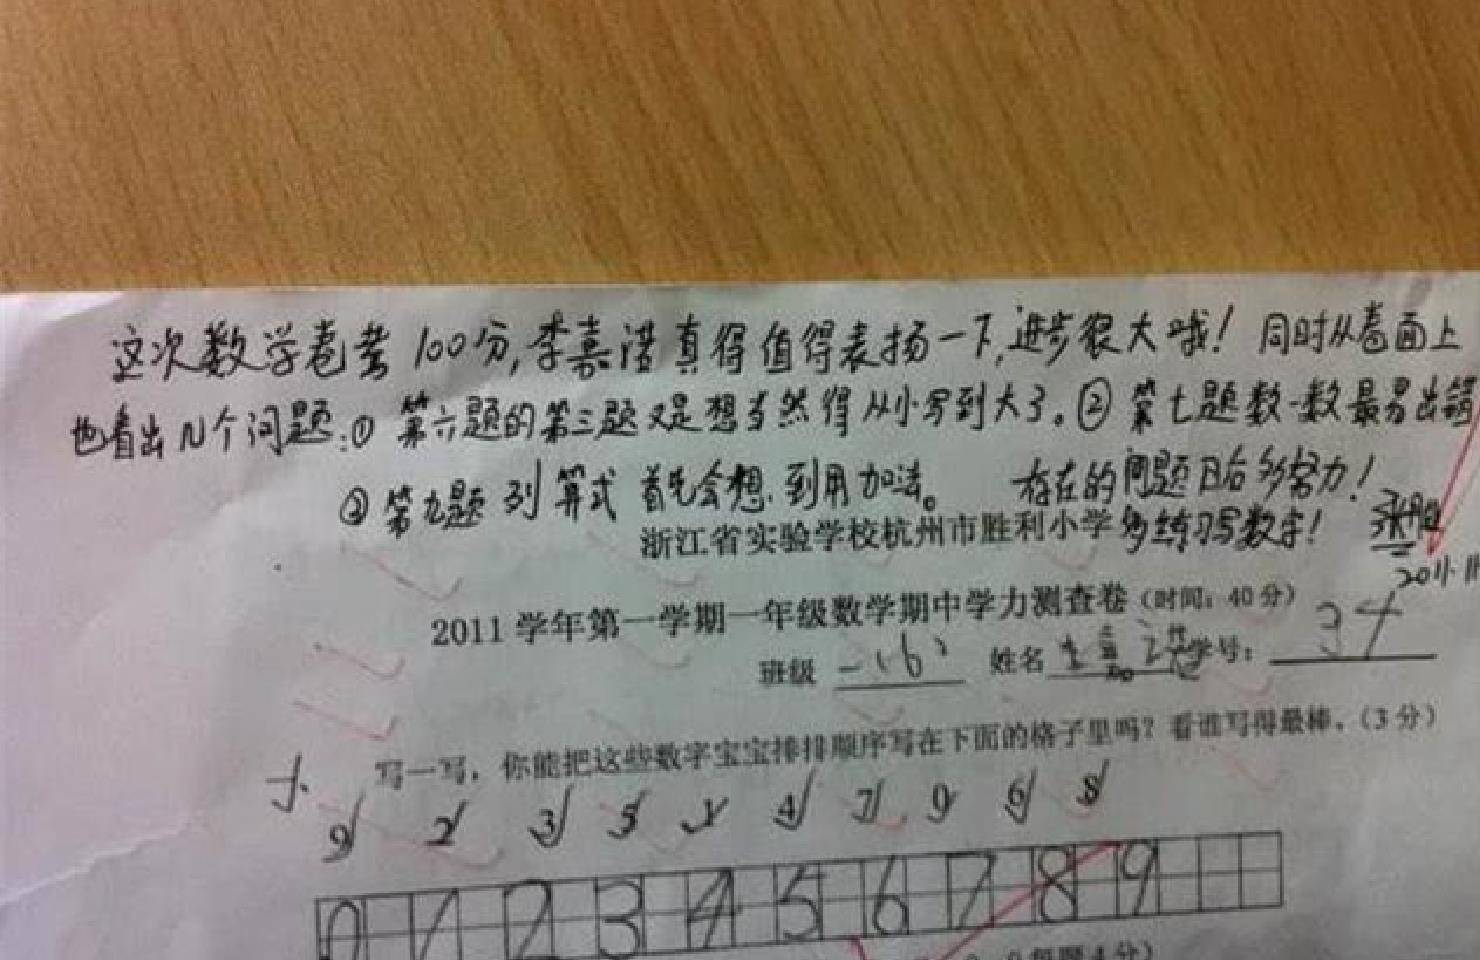 这次数学卷考100分,李嘉诺真得值得表扬一下,进步很大哦！同时从卷面上
也看出N个问题:① 第六题的第三题又是想当然得从小写到大了。② 第七题数一数最易出错
③ 第九题列算式 首先会想到用加法。 存在的问题日后多努力！
浙江省实验学校杭州市胜利小学 多练习写数字！
2011·11
2011学年第一学期一年级数学期中学力测查卷（时间：40分）
班级 一（6） 姓名 李嘉诺 学号： 34
一、 写一写，你能把这些数字宝宝排排顺序写在下面的格子里吗？看谁写得最棒。（3分）
9 2 3 5 1 4 7 0 6 8
0 1 2 3 4 5 6 7 8 9
4分）